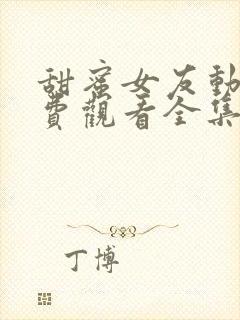 甜蜜女友動
費觀看全集
丁博